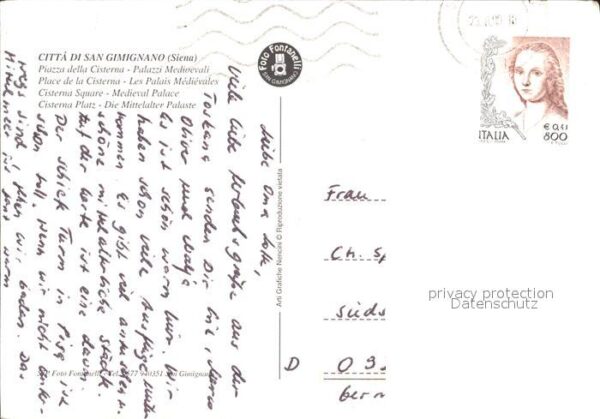 CITTÀ DI SAN GIMIGNANO (Siena)
Piazza della Cisterna - Palazzi Medioevali
Place de la Cisterna - Les Palais Médiévales
Cisterna Square - Medieval Palace
Cisterna Platz - Die Mittelalter Palaste
Foto Fontanelli
SAN GIMIGNANO
ITALIA
€ 0,41
800
Liebe Oma
Viele liebe Urlaubsgrüße aus der
Toskana senden Dir
Oliver und
Es ist schön warm hier. Wir
haben schon viele Ausflüge unter-
nommen. Es gibt viel anzusehen
schöne mittelalterliche Städte.
Auf der Karte ist eine davon
Der schiefe Turm in Pisa ist
schon toll. Wenn wir nicht unter-
wegs sind, gehen wir baden. Das
Mittelmeer ist ganz warm
Arti Grafiche Nencini © Riproduzione vietata
Foto Fontanelli - Tel. 0577 - 940351 San Gimignano
Frau
Ch. Sp
Süds
D 03
Germ
privacy protection
Datenschutz